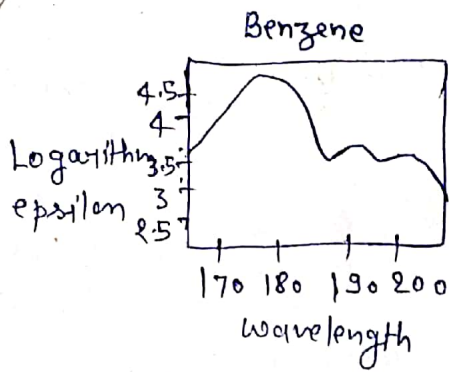 Benzene
4.5
4
Logarithm 3.5
3
epsilon
2.5
170 180 190 200
wavelength